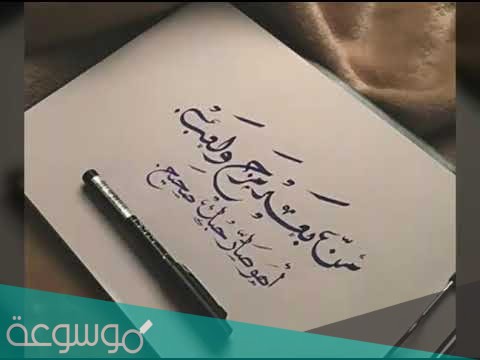 من بعد مزح ولعب
أهو صار حبك صحيح
موسوعة